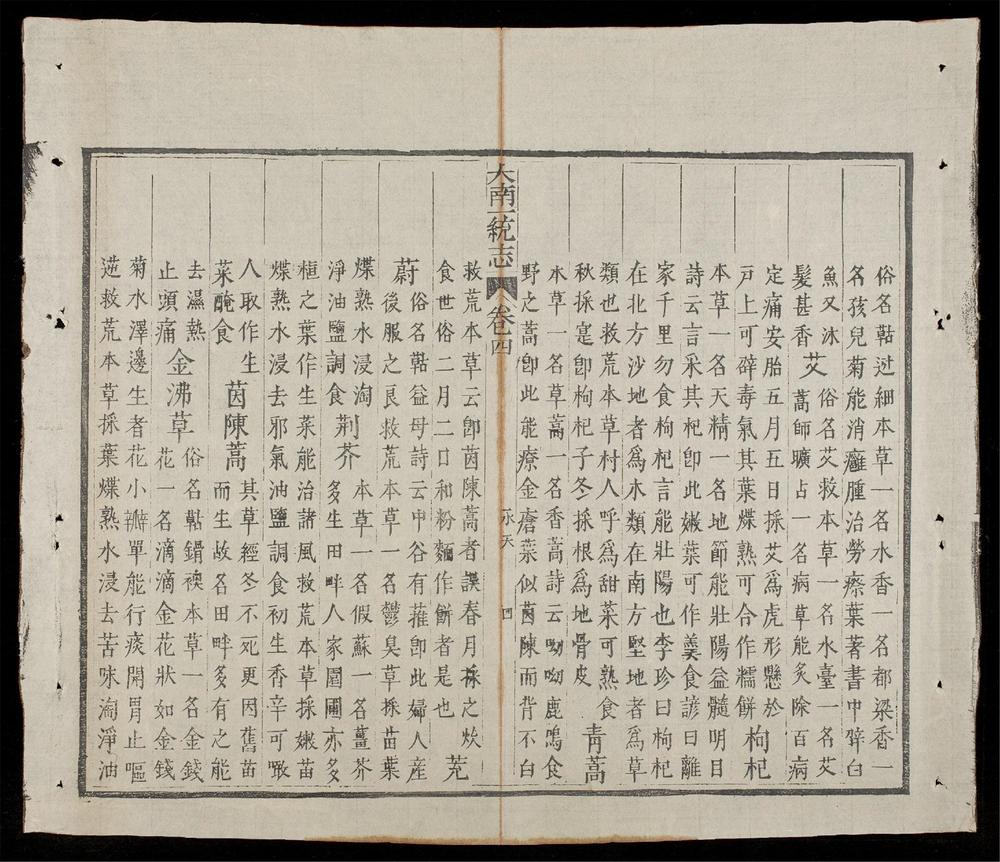 俗名䓊过細本草一名水香一名都梁香一
名孩兒菊能消癰腫治勞瘵葉著書中辟白
魚又沐
髮甚香艾俗名艾救本草一名水臺一名艾
蒿師曠占一名病草能炙除百病
定痛安胎五月五日採艾爲虎形懸於
戸上可辟毒氣其葉煠熟可合作糯餅枸杞
本草一名天精一名地節能壯陽益髓明目
詩云言采其杞卽此嫩葉可作羹食諺曰離
家千里勿食枸杞言能壯陽也李珍曰枸杞
在北方沙地者爲木類在南方堅地者爲草
類也救荒本草村人呼爲甜菜可熟食
秋採寔卽枸杞子冬採根爲地骨皮青蒿
本草一名草蒿一名香蒿詩云呦呦鹿鳴食
野之蒿卽此能療金瘡葉似茵陳而背不白
大南一統志 卷四 承天 四
救荒本草云卽茵陳蒿者誤春月採之炊
食世俗二月二日和粉麵作餅者是也茺
蔚俗名䓊益母詩云中谷有蓷卽此婦人産
後服之良救荒本草一名鬱臭草採苗葉
煠熟水浸淘
淨油鹽調食荆芥本草一名假蘇一名薑芥
多生田畔人家園圃亦多
植之葉作生菜能治諸風救荒本草採嫩苗
煠熟水浸去邪氣油鹽調食初生香辛可噉
人取作生
菜醃食茵陳蒿其草經冬不死更因舊苗
而生故名田畔多有之能
去濕熱
止頭痛金沸草俗名䓊鐕襖本草一名金錢
花一名滴滴金花狀如金錢
菊水澤邊生者花小瓣單能行痰開胃止嘔
逆救荒本草採葉煠熟水浸去苦味淘淨油